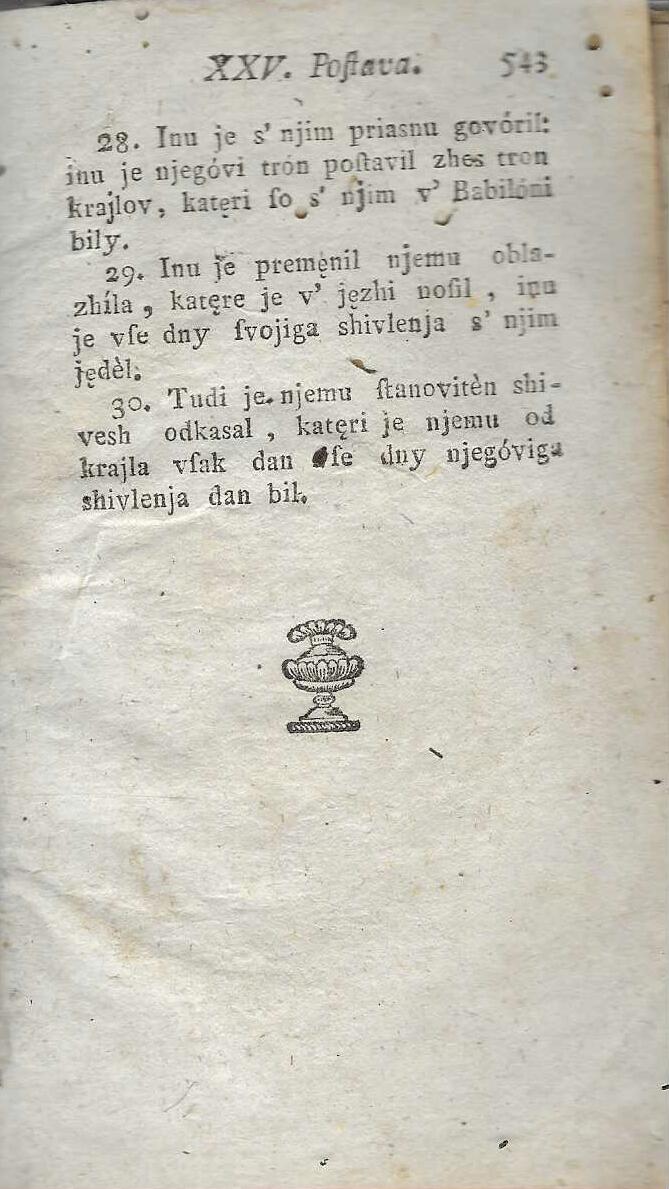 XXV. Poſtava. 543
28. Inu je s' njim priasnu govóril:
inu je njegóvi tron poſtavil zhes tron
krajlov, katęri ſo s' njim v' Babilóni
bily.
29. Inu je premęnil njemu obla-
zhíla, katęre je v' jęzhi noſil, inu
je vſe dny ſvojiga shivlenja s' njim
jędèl.
30. Tudi je njemu ſtanovitèn shi-
vesh odkasal, katęri je njemu od
krajla vſak dan ſe dny njegóviga
shivlenja dan bil.